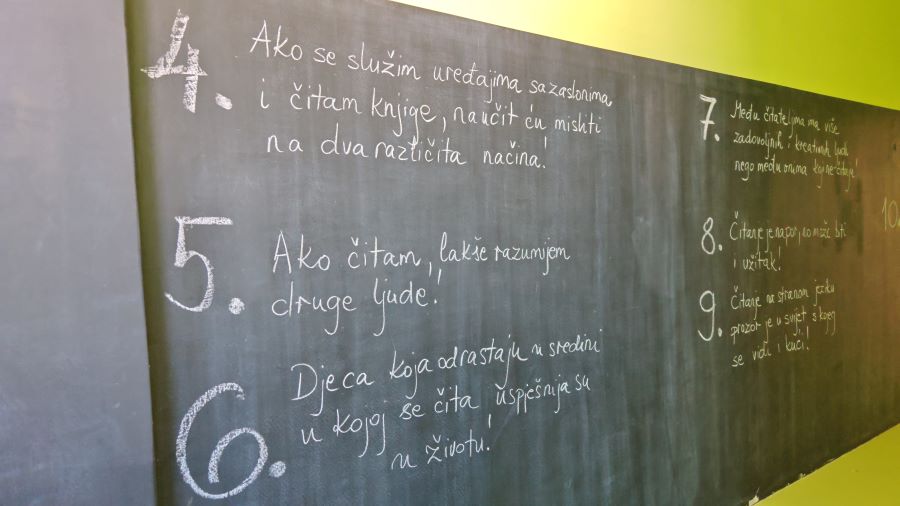 4. Ako se služim uređajima sa zaslonima
i čitam knjige, naučit ću misliti
na dva različita načina!
5. Ako čitam, lakše razumijem
druge ljude!
6. Djeca koja odrastaju u sredini
u kojoj se čita uspješnija su
u životu!
7. Među čitateljima ima više
zadovoljnih i kreativnih ljudi
nego među onima koji ne čitaju!
8. Čitanje je napor, no može biti
i užitak!
9. Čitanje na stranom jeziku
prozor je u svijet s kojeg
se vidi i kući!
10.